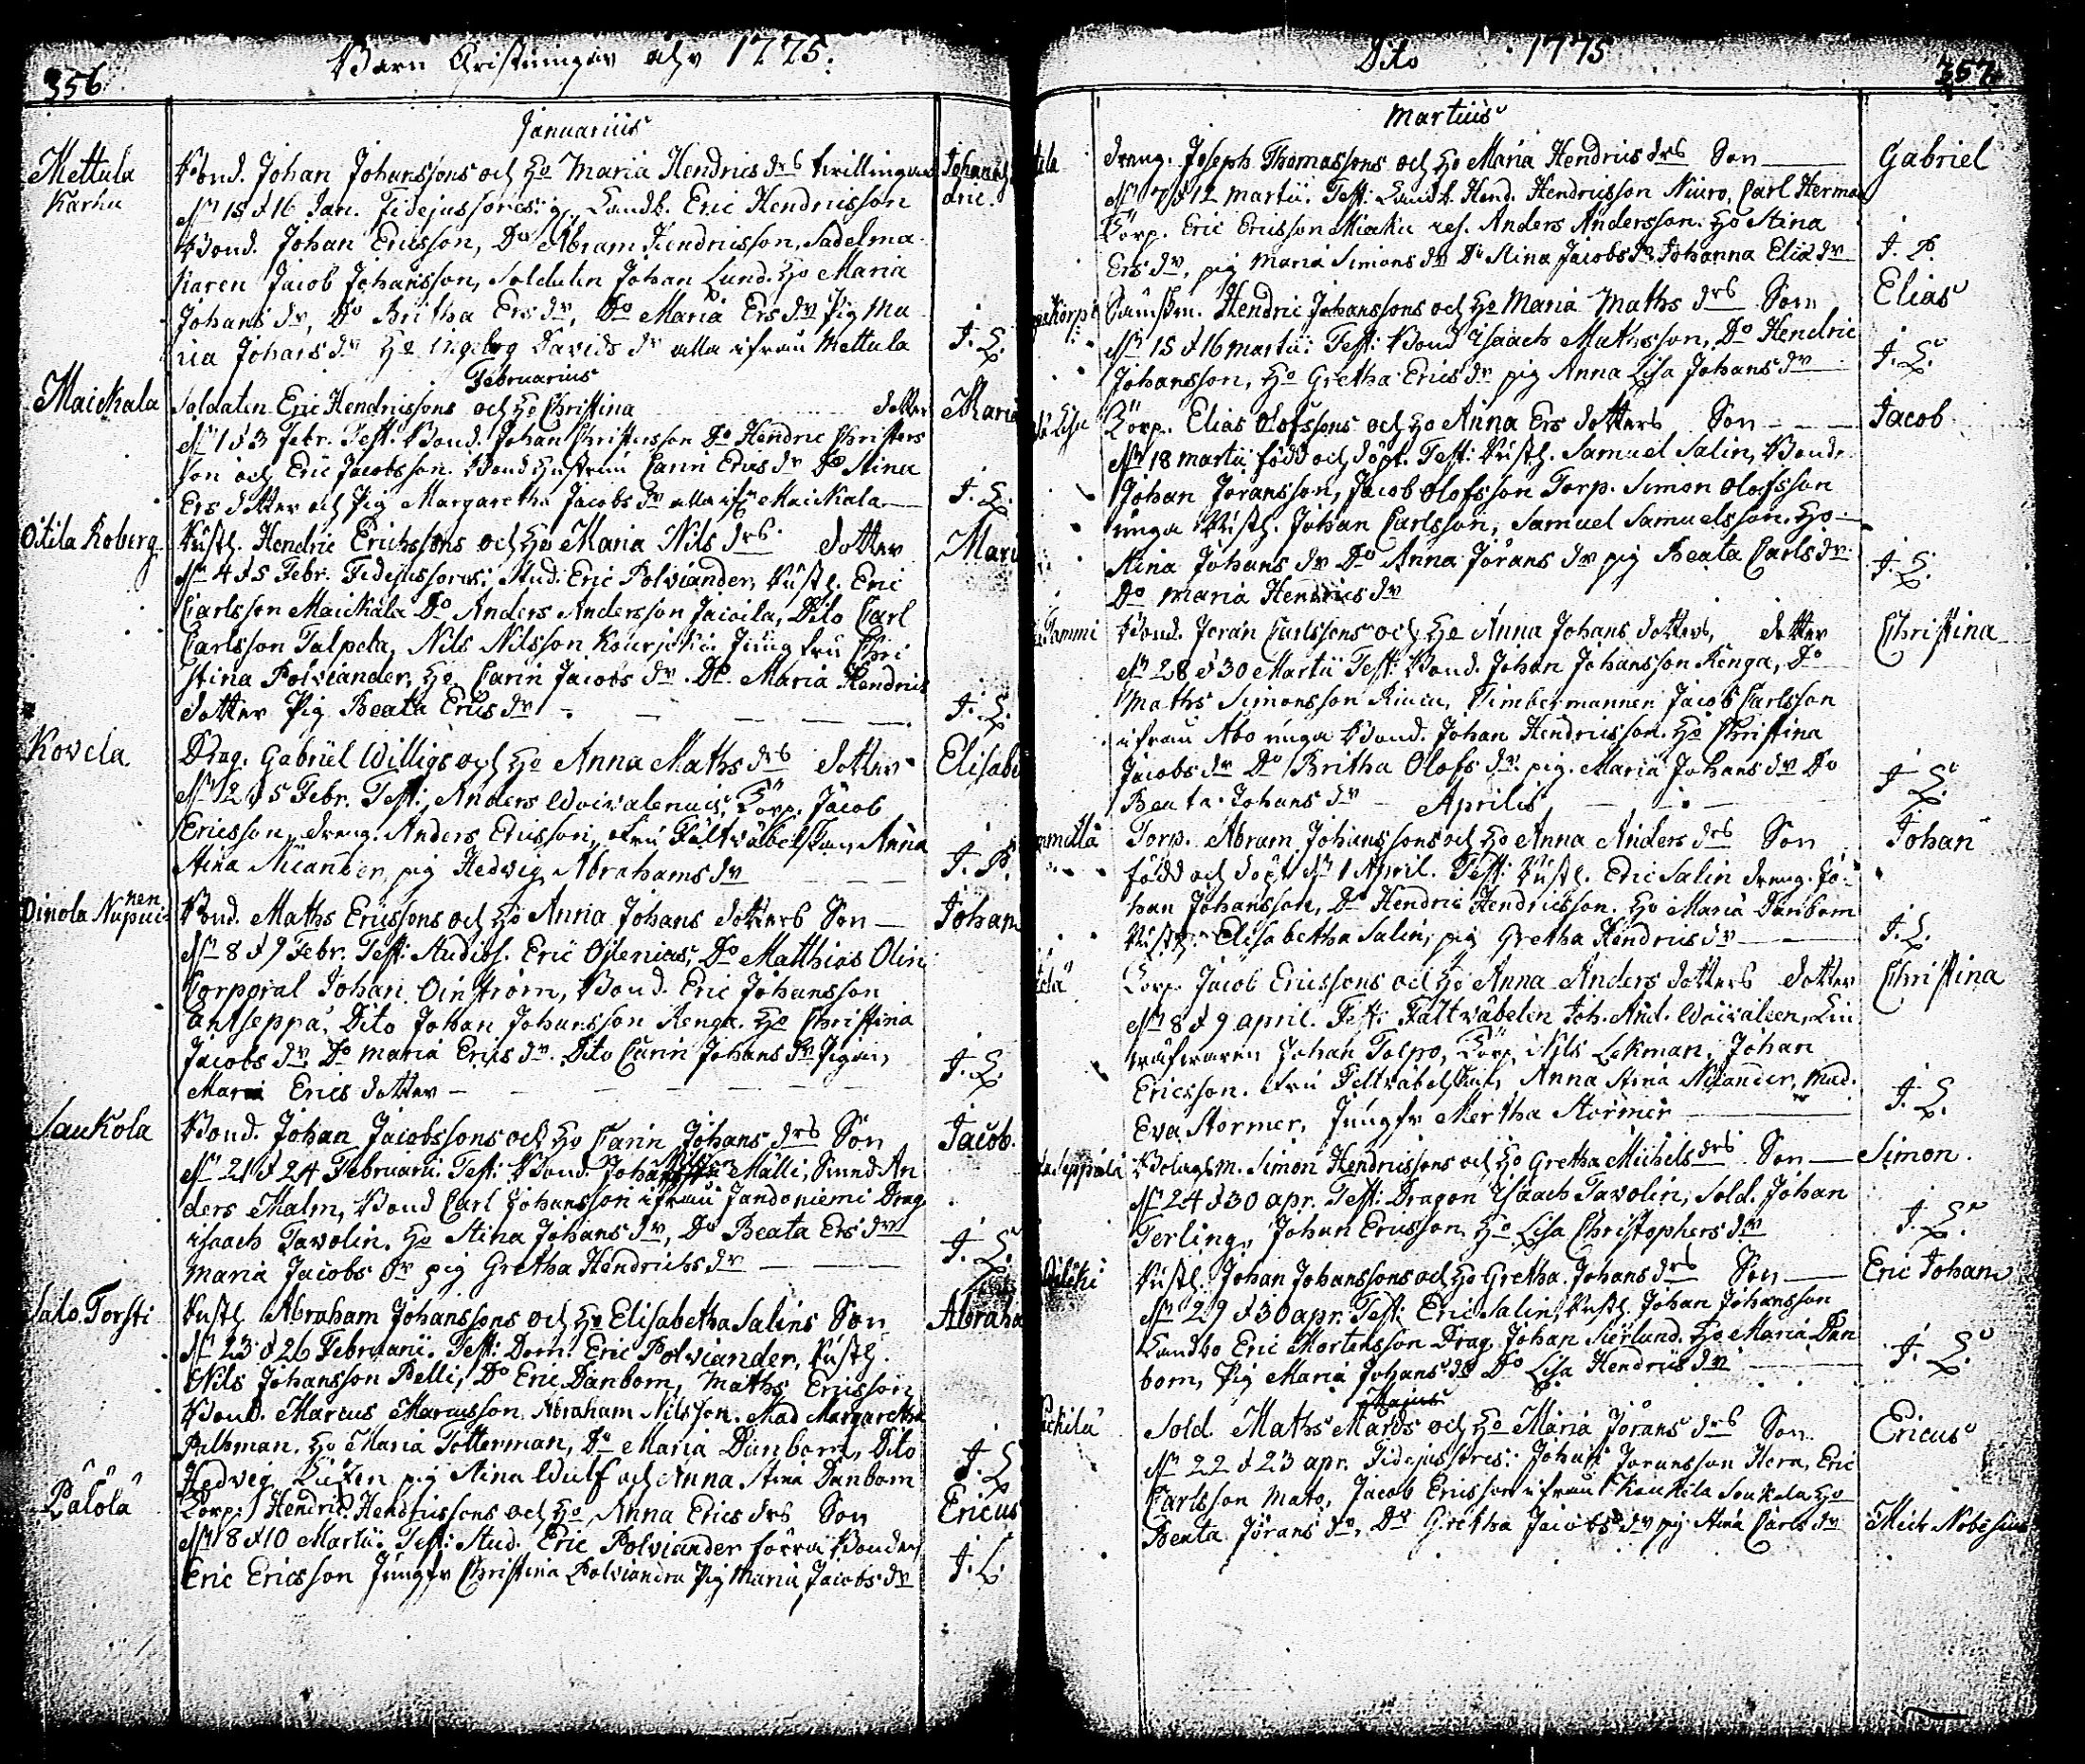 356
Barn Christningar åhr 1775.
Januarius
Mettula Karhu
Bond. Johan Johanssons och Ho Maria Hendrics drs tvillingar Johan, Hendric.
dn 15 d 16 Jan. Fidejussores: Landb. Eric Hendricsson
Bond. Johan Ericsson, Do Abram Hendricsson, Sadelma-
karen Jacob Johansson, Soldaten Johan Lund. Ho Maria
Johans dr, Do Britha Ers dr, Do Maria Ers dr Pig Ma
ria Johans dr Ho Ingeborg Davids dr alla ifrån Mettula J. L.
Februarius
Maickala Soldaten Eric Hendricssons och Ho Christina dotter Maria
dn 1 d 3 Febr. Test: Bond. Johan Christersson Do Hendric Christers
son och Eric Jacobsson. Bond hustrun Carin Erics dr Do Stina
Ers dotter och Pig Margaretha Jacobs dr alla ifr Maickala J. L.
Oxtila Roberg Rustl. Hendric Erichssons och Ho Maria Nils drs dotter Mari
dn 4 d 5 Febr. Fidejussores: Stud. Eric Polviander, Rustl. Eric
Carlsson Maickala Do Anders Andersson Jacoila, Dito Carl
Carlsson Talpela, Nils Nilsson Kourjoki Jungfru Chri
stina Polviander, Ho Carin Jacobs dr. Do Maria Hendrics
dotter Pig Beata Erics dr J. L.
Kovela Drag. Gabriel Willigs och Ho Anna Maths drs dotter Elisabe
dn 2 d 5 Febr. Test: Anders Woivalenius, Torp. Jacob
Ericsson, dreng. Anders Ericsson, Fru Fältväbelskan Anna
Stina Nicander, pig Hedvig Abrahams dr J. P.
Oinola Nupuinen Bond. Maths Ericssons och Ho Anna Johans dotters Son Johan
dn 8 d 9 Febr. Test: Studios. Eric Ostenius, Do Matthias Olin
Corporal Johan Oinström, Bond. Eric Johansson
Antseppä, Dito Johan Johansson Kenga. Ho Christina
Jacobs dr Do Maria Erics dr. Dito Carin Johans dr Pigan,
Maria Erics dotter J. L.
Saukola Bond. Johan Jacobssons och Ho Carin Johans drs Son Jacob.
dn 21 d 24 Februarii. Test: Bond. Johan Mälli, Smed An
ders Malm, Bond Carl Johansson ifrån Jandoniemi Drag
isaach Tavolin. Ho Stina Johans dr, Do Beata Ers dr
Maria Jacobs dr pig Gretha Hendrichs dr J. L.
Salo Torsti Rustl Abraham Johanssons och Ho Elisabetha Salins Son Abraha
dn 23 d 26 Februarii. Test: Dom. Eric Polviander, Rustl.
Nils Johansson Pelli, Do Eric Danbom, Maths Ericsson
Bond. Marcus Marcusson, Abraham Nilsson. Mad Margaretha
Ho Maria Totterman, Do Maria Danbom, Dito
Hedvig pig Stina Wulf och Anna Stina Danbom J. L
Pälölä Torp: Hendric Hendricssons och Ho Anna Erics drs Son Ericus
dn 8 d 10 Martii. Test: Stud. Eric Polviander förra Bonden
Eric Ericsson Jungfr Christina Polviandra Pig Maria Jacobs dr J. L.
Dito 1775
357
Martius
dreng. Joseph Thomassons och Ho Maria Hendrics drs Son Gabriel
dn 7 d 12 Martii. Test: Landb. Hend. Hendricsson Niuro, Carl Herman
Torp. Eric Ericsson ref. Anders Andersson. Ho Stina
Ers dr, pig Maria Simons dr Do Stina Jacobs dr Johanna Elia dr J. P.
Hendric Johanssons och Ho Maria Maths drs Son Elias
dn 15 d 16 martii: Test: Bond Isaach Mathsson, Do Hendric
Johansson, Ho Gretha Erics dr pig Anna Lisa Johans dr J. L.
Torp. Elias Olofssons och Ho Anna Ers dotters Son Jacob
dn 18 martii född och döpt. Test: Rustl. Samuel Salin, Bond.
Johan Jöransson, Jacob Olofsson Torp. Simon Olofsson
unga Rustl. Johan Carlsson, Samuel Samuelsson. Ho
Stina Johans dr Do Anna Jörans dr pig Beata Carls dr
Do Maria Hendrics dr J. L.
Tammi Bond. Jöran Carlssons och Ho Anna Johans dotters, dotter Christina
dn 28 d 30 Martii Test: Bond. Johan Johansson Kenga, Do
Maths Simonsson Timbermannen Jacob Carlsson
ifrån Åbo unga Bond. Johan Hendricsson. Ho Christina
Jacobs dr Do Britha Olofs dr. pig. Maria Johans dr Do
Beata Johans dr J. L.
Aprilis
Torp. Abram Johanssons och Ho Anna Anders drs Son Johan
född och döpt dn 1 April. Test: Rustl. Eric Salin dreng. Jo-
han Johansson, Do Hendric Hendricsson. Ho Maria Danbom
Rustl: Elisabetha Salin, pig Gretha Hendrics dr J. L.
Torp. Jacob Ericssons och Ho Anna Anders dotters dotter Christina
dn 8 d 9 april. Test: Fältväbelen Joh. And. Woivaleen, Lin
väfvaren Johan Tolpo, Torp. Nils Lekman, Johan
Ericsson. Fru Feltväbelskan, Anna Stina Nicander, Mad.
Eva Stormer, Jungfr Mertha Stormer J. L.
Bolagsm. Simon Hendricssons och Ho Gretha Michels drs Son Simon.
dn 24 d 30 apr. Test: Dragon Isaach Tavolin, Sold. Johan
Terling, Johan Ericsson, Ho Lisa Christophers dr J. L.
Rustl. Johan Johanssons och Ho Gretha Johans drs Son Eric Johan
dn 29 d 30 apr. Test: Eric Salin, Rustl. Johan Johansson
Landbo Eric Mortensson Drag. Johan Sierlund. Ho Maria Dan
bom, Pig Maria Johans dr Do Lisa Hendrics dr J. L.
Majus
Sold Maths Mards och Ho Maria Jörans drs Son Ericus
dn 22 d 23 apr. Fidejussores: Johan Joransson Hera, Eric
Carlsson Mato, Jacob Ericsson ifrån Kaukila Ho
Beata Jörans dr, Do Gretha Jacobs dr pig Stina Carls dr